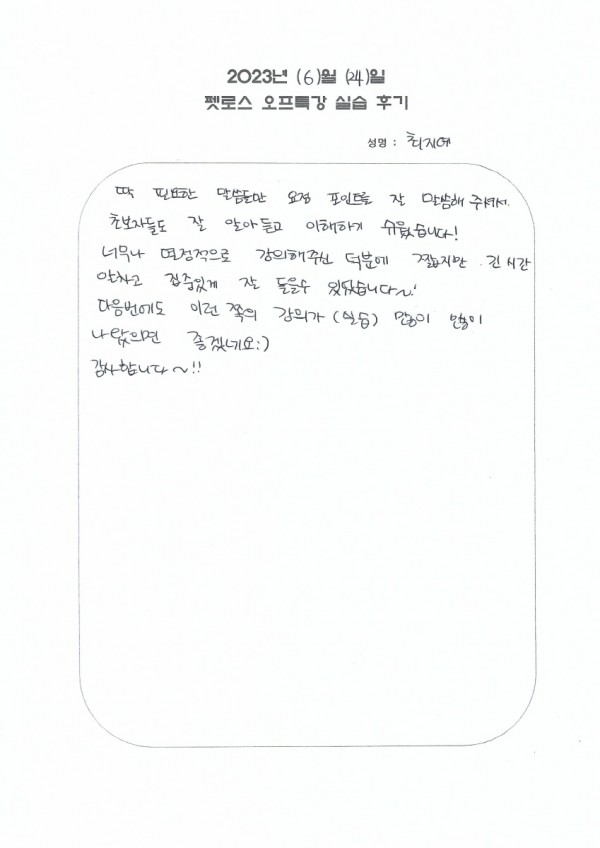 2023년 (6)월 (24)일
펫로스 오프특강 실습 후기
성명 : 최지예
딱 필요한 말씀들만 요점 포인트를 잘 말씀해 주셔서
초보자들도 잘 알아듣고 이해하기 쉬웠습니다!
너무나 열정적으로 강의해주신 덕분에 짧지만 긴 시간
알차고 집중있게 잘 들을수 있었습니다~!
다음번에도 이런 쪽의 강의가 (실습) 많이 많이
나왔으면 좋겠네요:)
감사합니다~!!